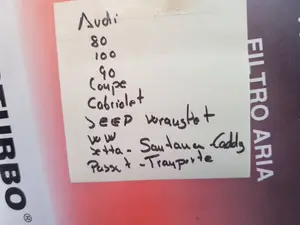 Audi
80
100
90
Coupe
Cabriolet
JEEP
VW
Jetta - Santana - Caddy
Passat - Tranporte
FILTRO ARIA
TURBO®